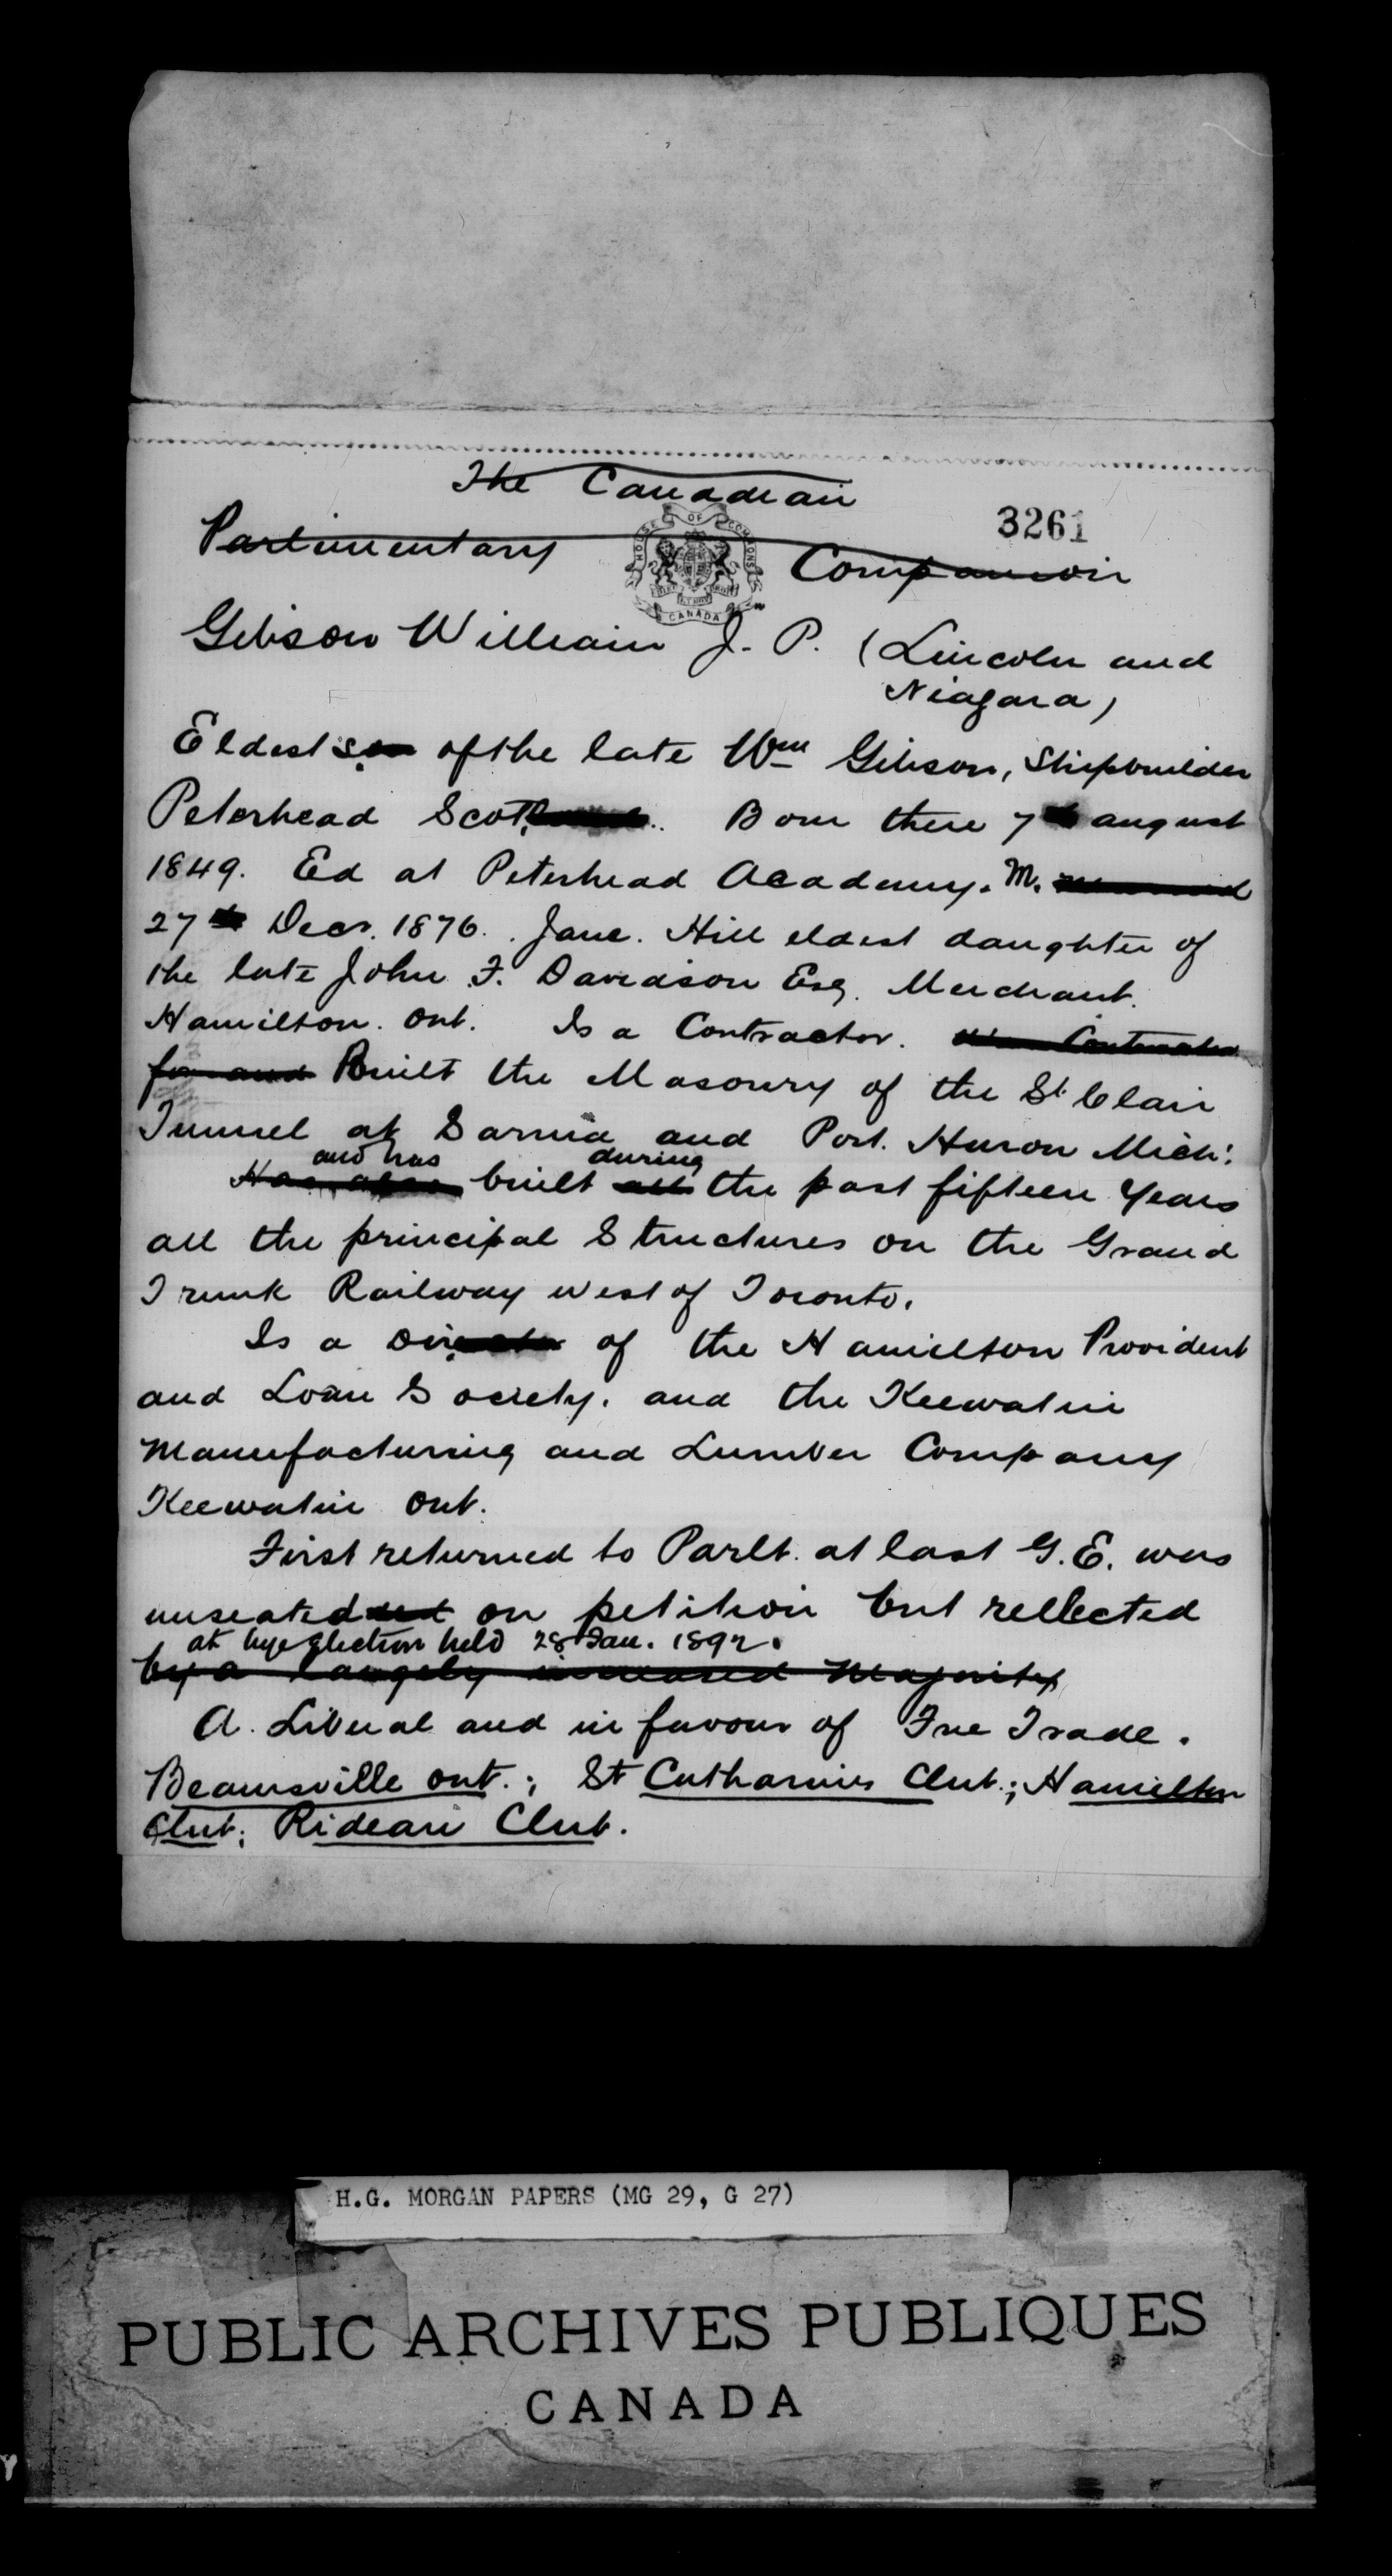 The Canadian
3261
Parlimentary Companion
HOUSE OF COMMONS
CANADA
Gibson William J. P. (Lincoln and
Niagara)
Eldest son of the late Wm Gibson, Shipbuilder
Peterhead Scotland. Born there 7th august
1849. Ed at Peterhead Academy. M. Married
27th Decr. 1876. Jane. Hill eldest daughter of
the late John F. Davidson Esq. Merchant.
Hamilton. Ont. Is a Contractor. Contractor
for and Built the Masonry of the St. Clair
Tunnel at Sarnia and Port. Huron Mich:
and has during
Has also built all the past fifteen Years
all the principal Structures on the Grand
Trunk Railway west of Toronto.
Is a Director of the Hamilton Provident
and Loan Society. and the Keewatin
Manufacturing and Lumber Company
Keewatin Ont.
First returned to Parlt. at last G.E. was
unseated on petition but rellected
at bye election held 28 Jan. 1892.
by a largely increased Majority
A. Liberal and in favour of Free Trade.
Beamsville Ont.; St Catharines Club.; Hamilton
Club; Rideau Club.
H.G. MORGAN PAPERS (MG 29, G 27)
PUBLIC ARCHIVES PUBLIQUES
CANADA